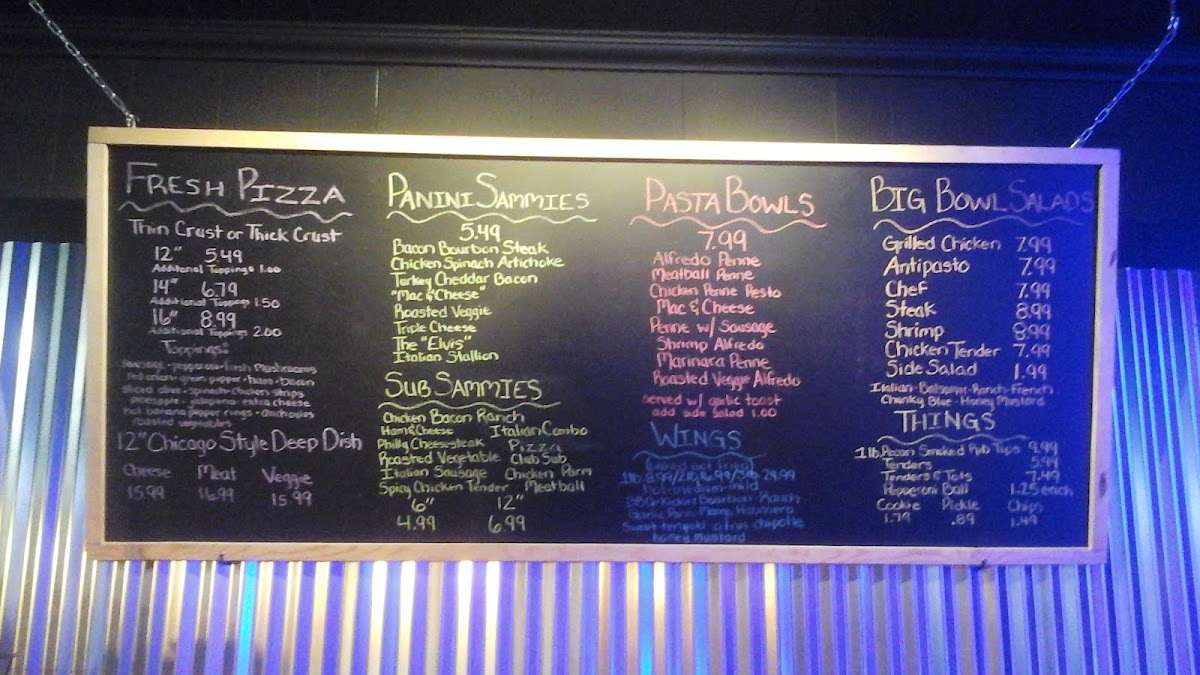 FRESH PIZZA
Thin Crust or Thick Crust
12" 5.49
Additional Toppings 1.00
14" 6.79
Additional Toppings 1.50
16" 8.99
Additional Toppings 2.00
Toppings:
sausage - pepperoni - fresh mushrooms
red onion - green pepper - ham - bacon
sliced olive - spinach - chicken strips
pineapple - jalapeno - extra cheese
hot banana pepper rings - anchovies
roasted vegetables
12" Chicago Style Deep Dish
Cheese Meat Veggie
15.99 16.99 15.99
PANINI SAMMIES
5.49
Bacon Bourbon Steak
Chicken Spinach Artichoke
Turkey Cheddar Bacon
"Mac & Cheese"
Roasted Veggie
Triple Cheese
The "Elvis"
Italian Stallion
SUB SAMMIES
Chicken Bacon Ranch
Ham & Cheese Italian Combo
Philly Cheesesteak Pizza
Roasted Vegetable Club Sub
Italian Sausage Chicken Parm
Spicy Chicken Tender Meatball
6" 12"
4.99 6.99
PASTA BOWLS
7.99
Alfredo Penne
Meatball Penne
Chicken Penne Pesto
Mac & Cheese
Penne w/ Sausage
Shrimp Alfredo
Marinara Penne
Roasted Veggie Alfredo
served w/ garlic toast
add side salad 1.00
WINGS
(baked not fried)
1lb 8.99/2lb
hot - medium - mild
BBQ - Bourbon - Ranch
Garlic Parm - Habanero
sweet teriyaki - citrus chipotle
honey mustard
BIG BOWL SALADS
Grilled Chicken 7.99
Antipasto 7.99
Chef 7.99
Steak 8.99
Shrimp 8.99
Chicken Tender 7.49
Side Salad 1.99
Italian - Balsamic - Ranch - French
Chunky Blue - Honey Mustard
THINGS
1 lb. Pecan Smoked Rib Tips 9.99
Tenders 5.99
Tenders & Tots 7.49
Pepperoni Ball 1.25 each
Cookie Pickle Chips
1.79 .89 1.49